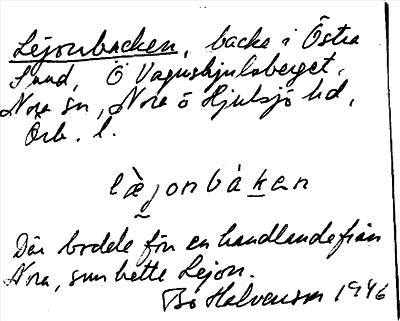 Lejonbacken, backe i Östra
Sund, Ö Vagnshjulsberget,
Nora sn, Nora o Hjulsjö hd,
Örb. l.
lèjonbàkan
Där bodde förr en handlande från
Nora, som hette Lejon.
Bo Halvenson 1946